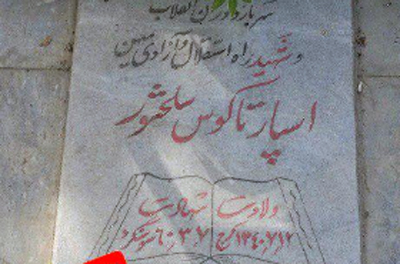 سرباز دوران انقلاب
و شهید راه استقلال و آزادی میهن
اسپارتاکوس سلحشور
ولادت شهادت